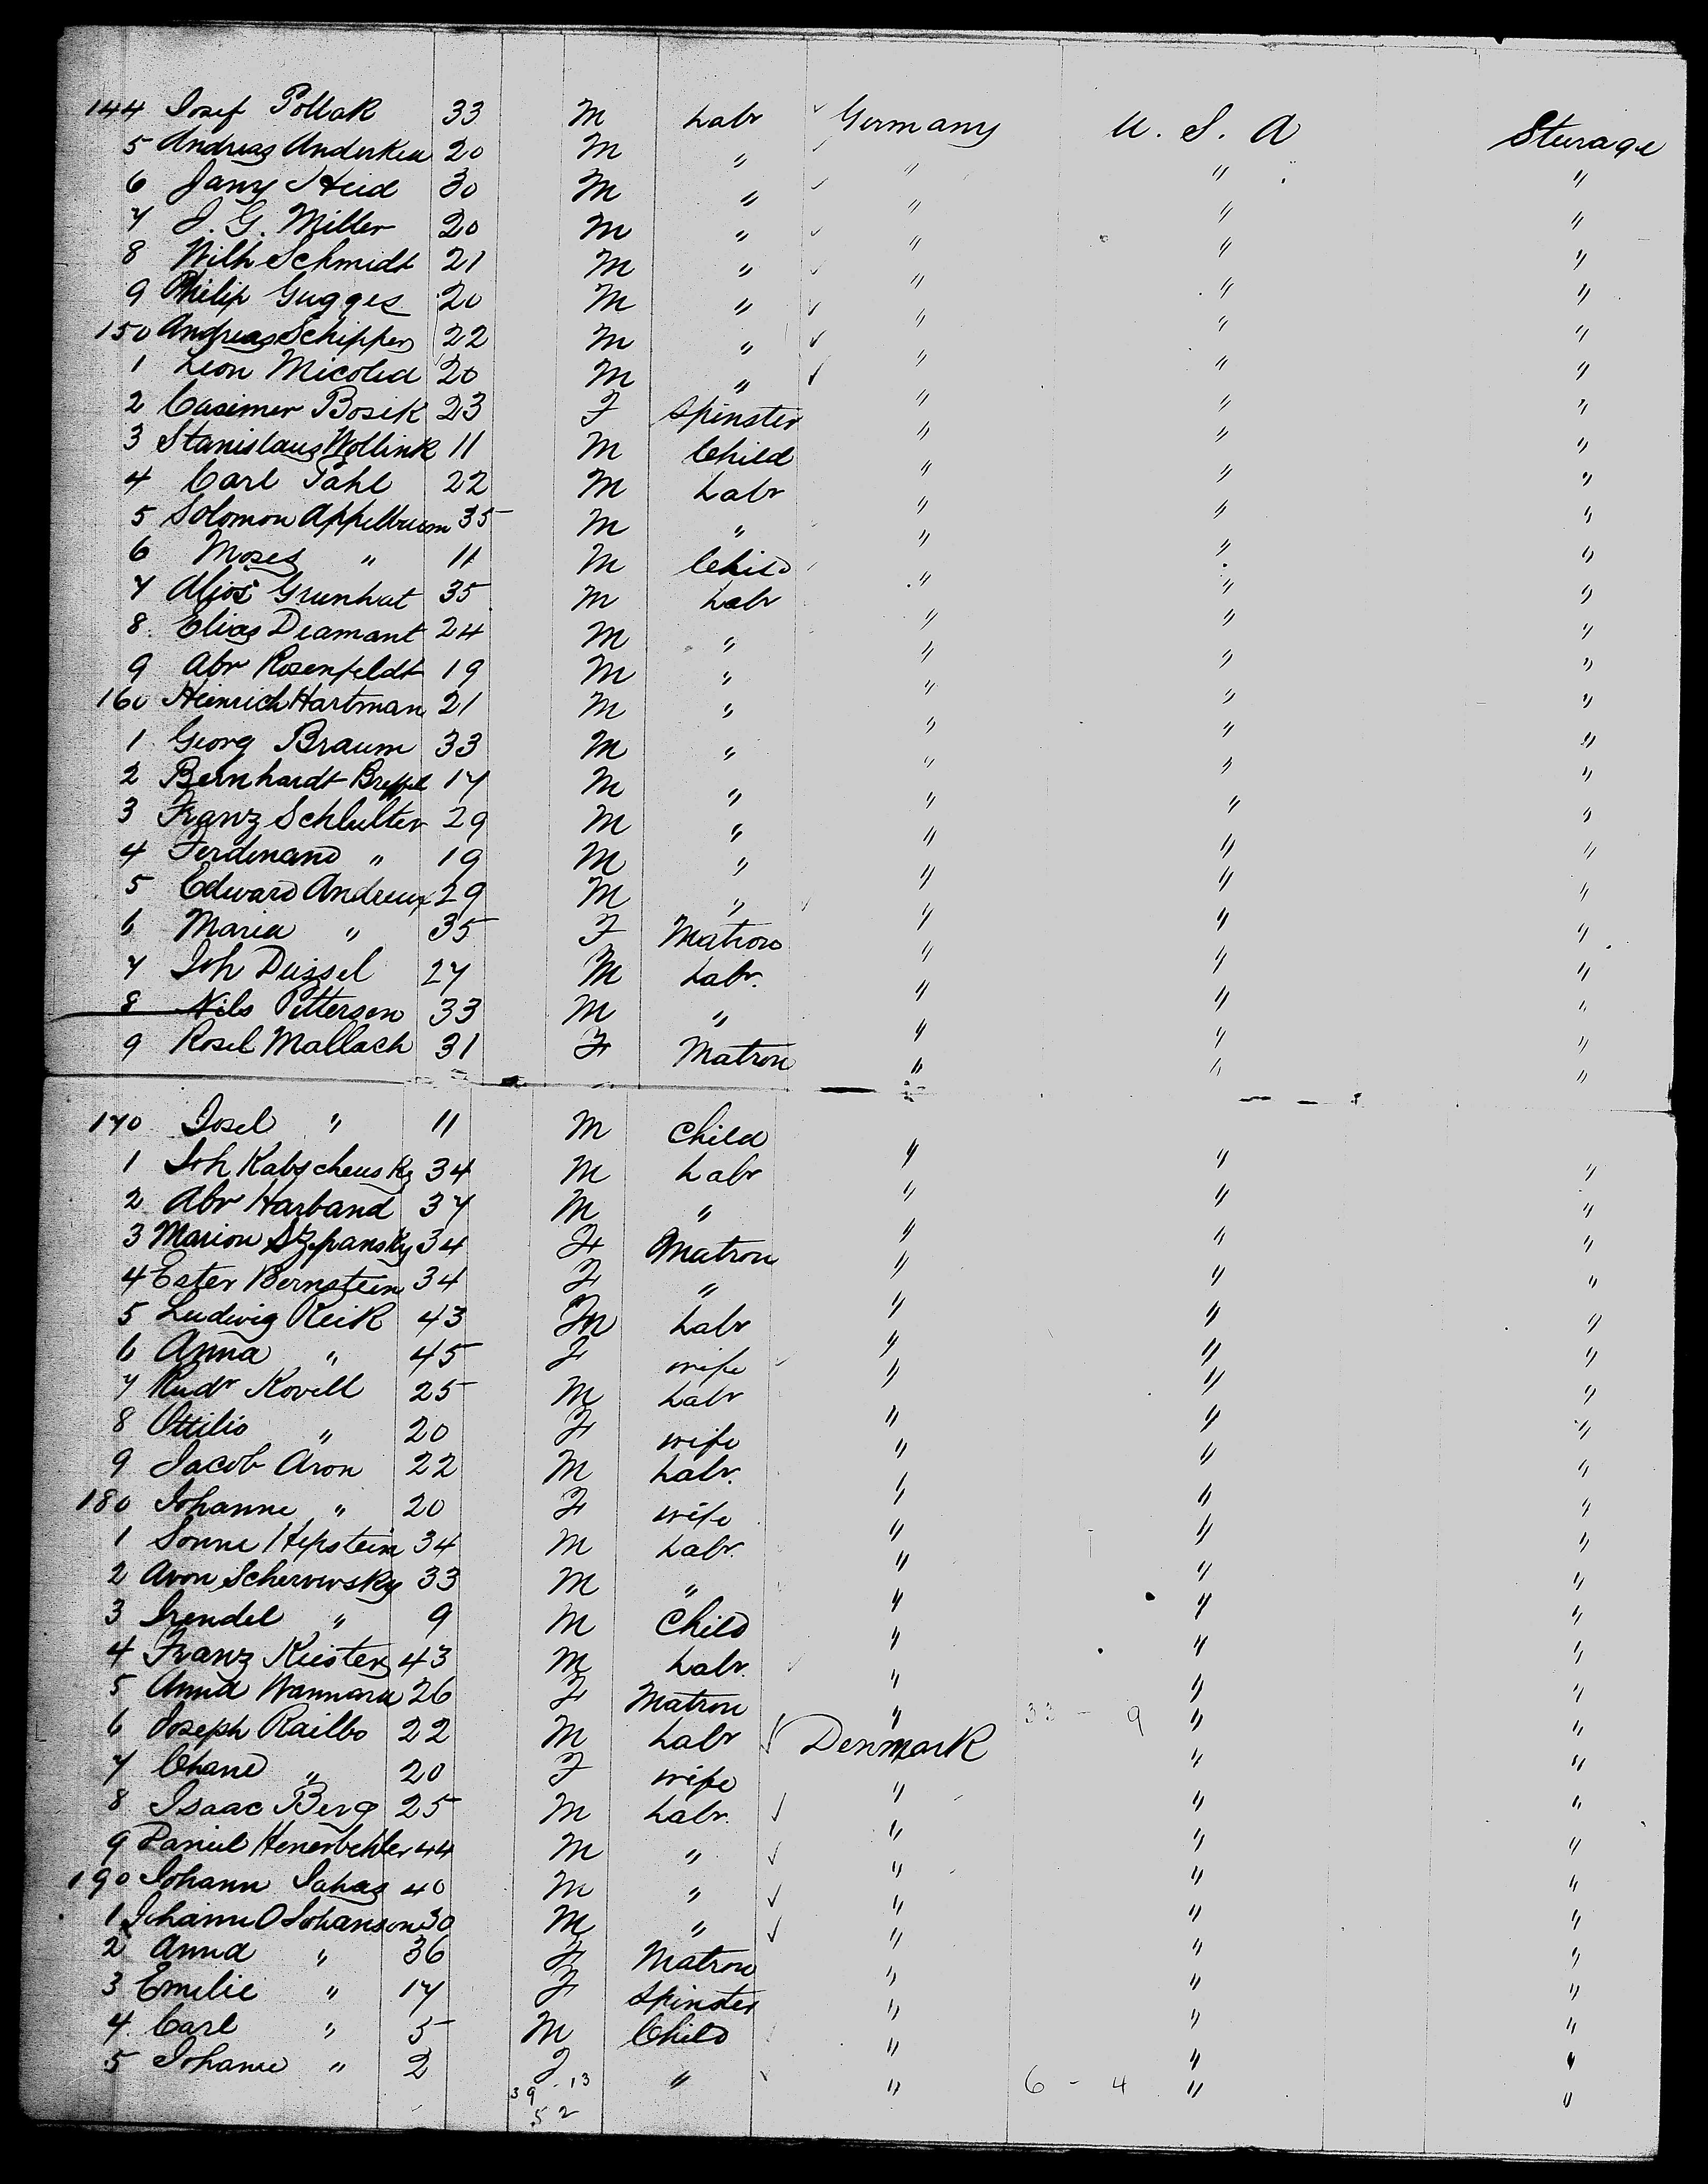 144 Josef Pollak 33 M Labr Germany U. S. A Sturage
5 Andreas Anderkea 20 M " " " "
6 Jany Heid 30 M " " " "
7 J. G. Miller 20 M " " " "
8 Wilh Schmidt 21 M " " " "
9 Philip Gugges 20 M " " " "
150 Andreas Schipper 22 M " " " "
1 Leon Micolid 20 M " " " "
2 Casimer Bosik 23 F Spinster " " "
3 Stanislaus Wollink 11 M Child " " "
4 Carl Pahl 22 M Labr " " "
5 Solomon Appelbaum 35 M " " " "
6 Moses " 11 M Child " " "
7 Alios Grunhut 35 M Labr " " "
8 Elias Diamant 24 M " " " "
9 Abr Rosenfeldt 19 M " " " "
160 Heinrich Hartman 21 M " " " "
1 Georg Braum 33 M " " " "
2 Bernhardt 17 M " " " "
3 Franz Schlulter 29 M " " " "
4 Ferdinand " 19 M " " " "
5 Edward Andreux 29 M " " " "
6 Maria " 35 F Matron " " "
7 Joh Dussel 27 M Labr. " " "
8 Nils Pettersen 33 M " " " "
9 Rosel Mallach 31 F Matron " " "
170 Josel " 11 M Child " " "
1 Joh Kabscheusky 34 M Labr " " "
2 Abr Harband 37 M " " " "
3 Marion Szepansky 34 F Matron " " "
4 Ester Bernstein 34 F " " " "
5 Ludwig Reik 43 M Labr " " "
6 Anna " 45 F wife " " "
7 Rudr Kovell 25 M Labr " " "
8 Ottilio " 20 F wife " " "
9 Jacob Aron 22 M Labr. " " "
180 Johanne " 20 F wife " " "
1 Sonne Hepstein 34 M Labr. " " "
2 Aron Schervwsky 33 M " " " "
3 Irendel " 9 M Child " " "
4 Franz Kuster 43 M Labr. " " "
5 Anna Wannara 26 F Matron " 33 - 9 " "
6 Joseph Railbo 22 M Labr Denmark " "
7 Chane " 20 F wife " " "
8 Isaac Berg 25 M Labr. " " "
9 Daniel Henerbehler 44 M " " " "
190 Johann Jahas 40 M " " " "
1 Johanne O Johanson 30 M " " " "
2 Anna " 36 F Matron " " "
3 Emilie " 17 F Spinster " " "
4 Carl " 5 M Child " " "
5 Johanne " 2 F " " 6 - 4 " "
39 - 13
52